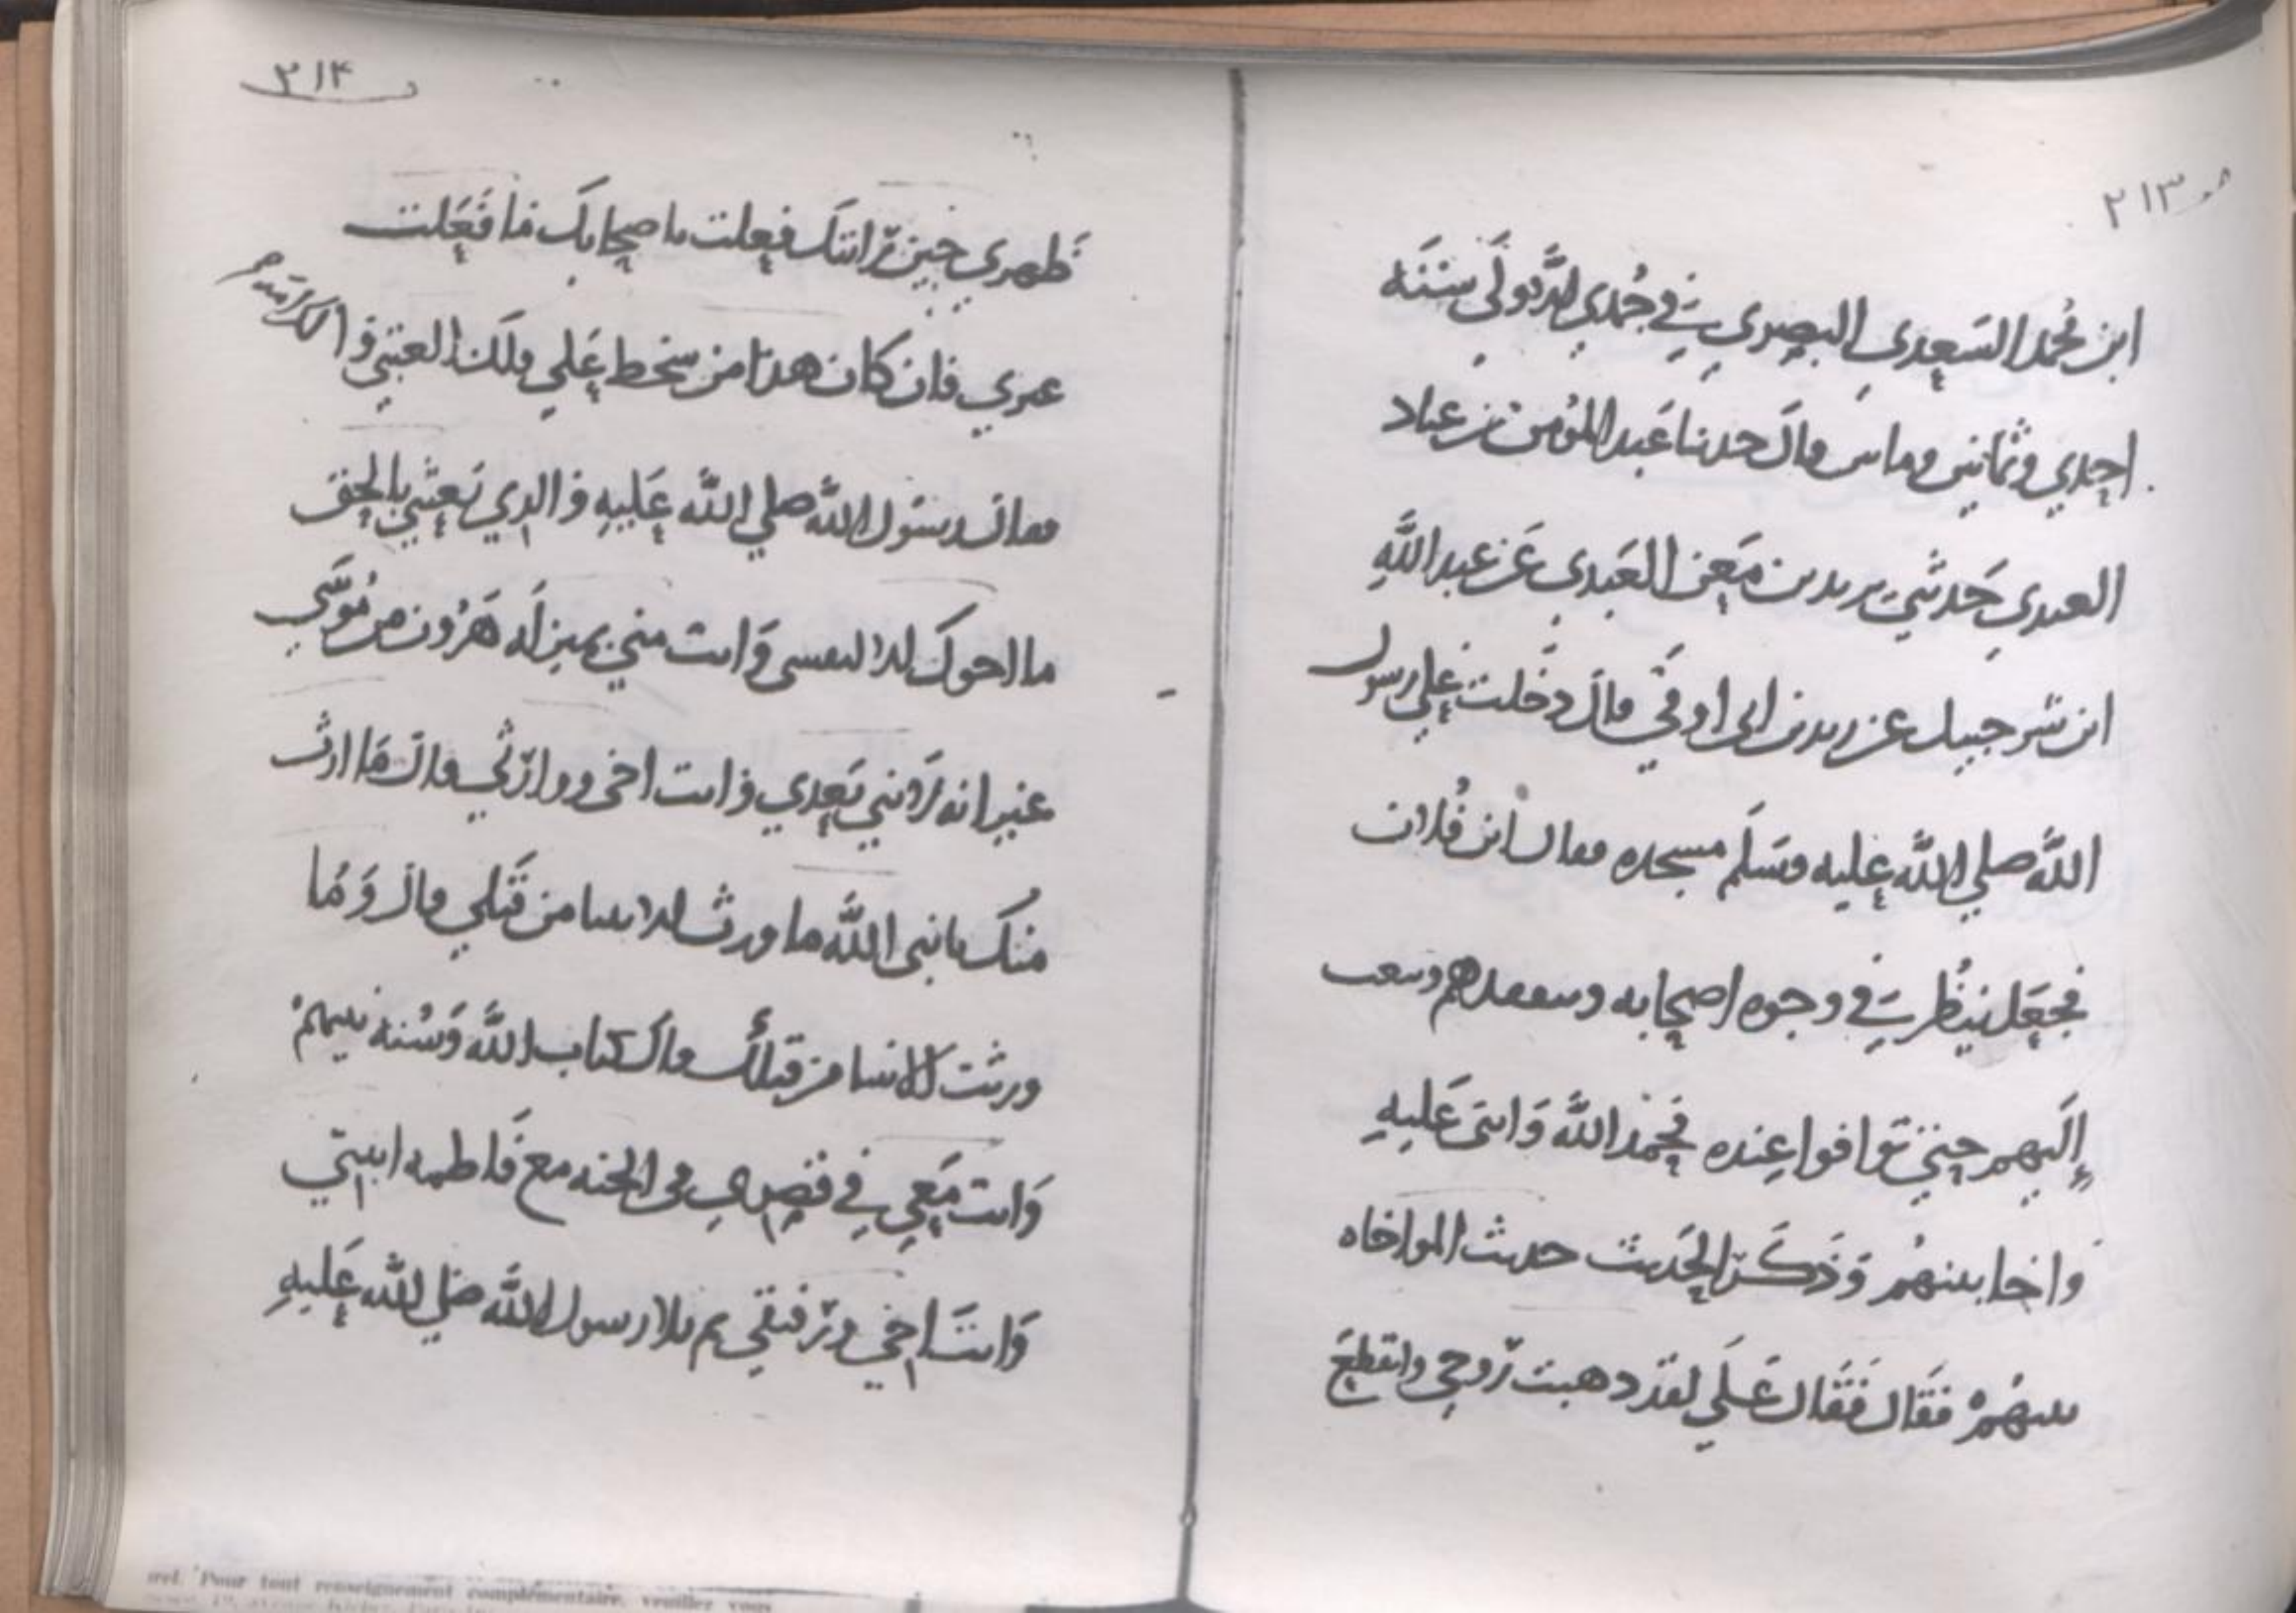 ٢١٣
ابن محمد السعدي البصري في جمدي الاولى سنه
احدي وثمانين وماس وال حدنا عبد المؤمن بن عباد
العبدي حدثني يريد بن معن العبدي عن عبد الله
ابن شرحبيل عن ريد بن ابى اوفي قال دخلت علي رسول
الله صلي الله عليه وسلم مسجده فقال اين فلان
فجعل ينظر في وجوه اصحابه وسعقدهم وسعب
إليهم حتي توافوا عنده فحمد الله واثنى عليه
واخا بينهم وذكر الحديث حديث المواخاه
بينهم فقال فقال علي لقد دهبت روحي وانقطع
٢١۴
ظهري حين رايتك فعلت باصحابك ما فعلت
غيري فان كان هدا من سخط علي فلك العتبي و الكرامه
فقال رسول الله صلي الله عليه والدي بعثني بالحق
ما اخرتك الا لنفسي وانت مني بمنزله هرون من موسي
غير انه لا نبي بعدي وانت اخى ووارثي قال ما ارث
منك يا نبى الله ما ورث الانبيا من قبلي قال وما
ورثت الانبيا من قبلك قال كتاب الله وسنه نبيهم
وانت معي في قصري فى الجنه مع فاطمه ابنتي
وانت اخي ورفيقي ثم تلا رسول الله صلي الله عليه
Pour tout renseignement complémentaire, veuillez vous